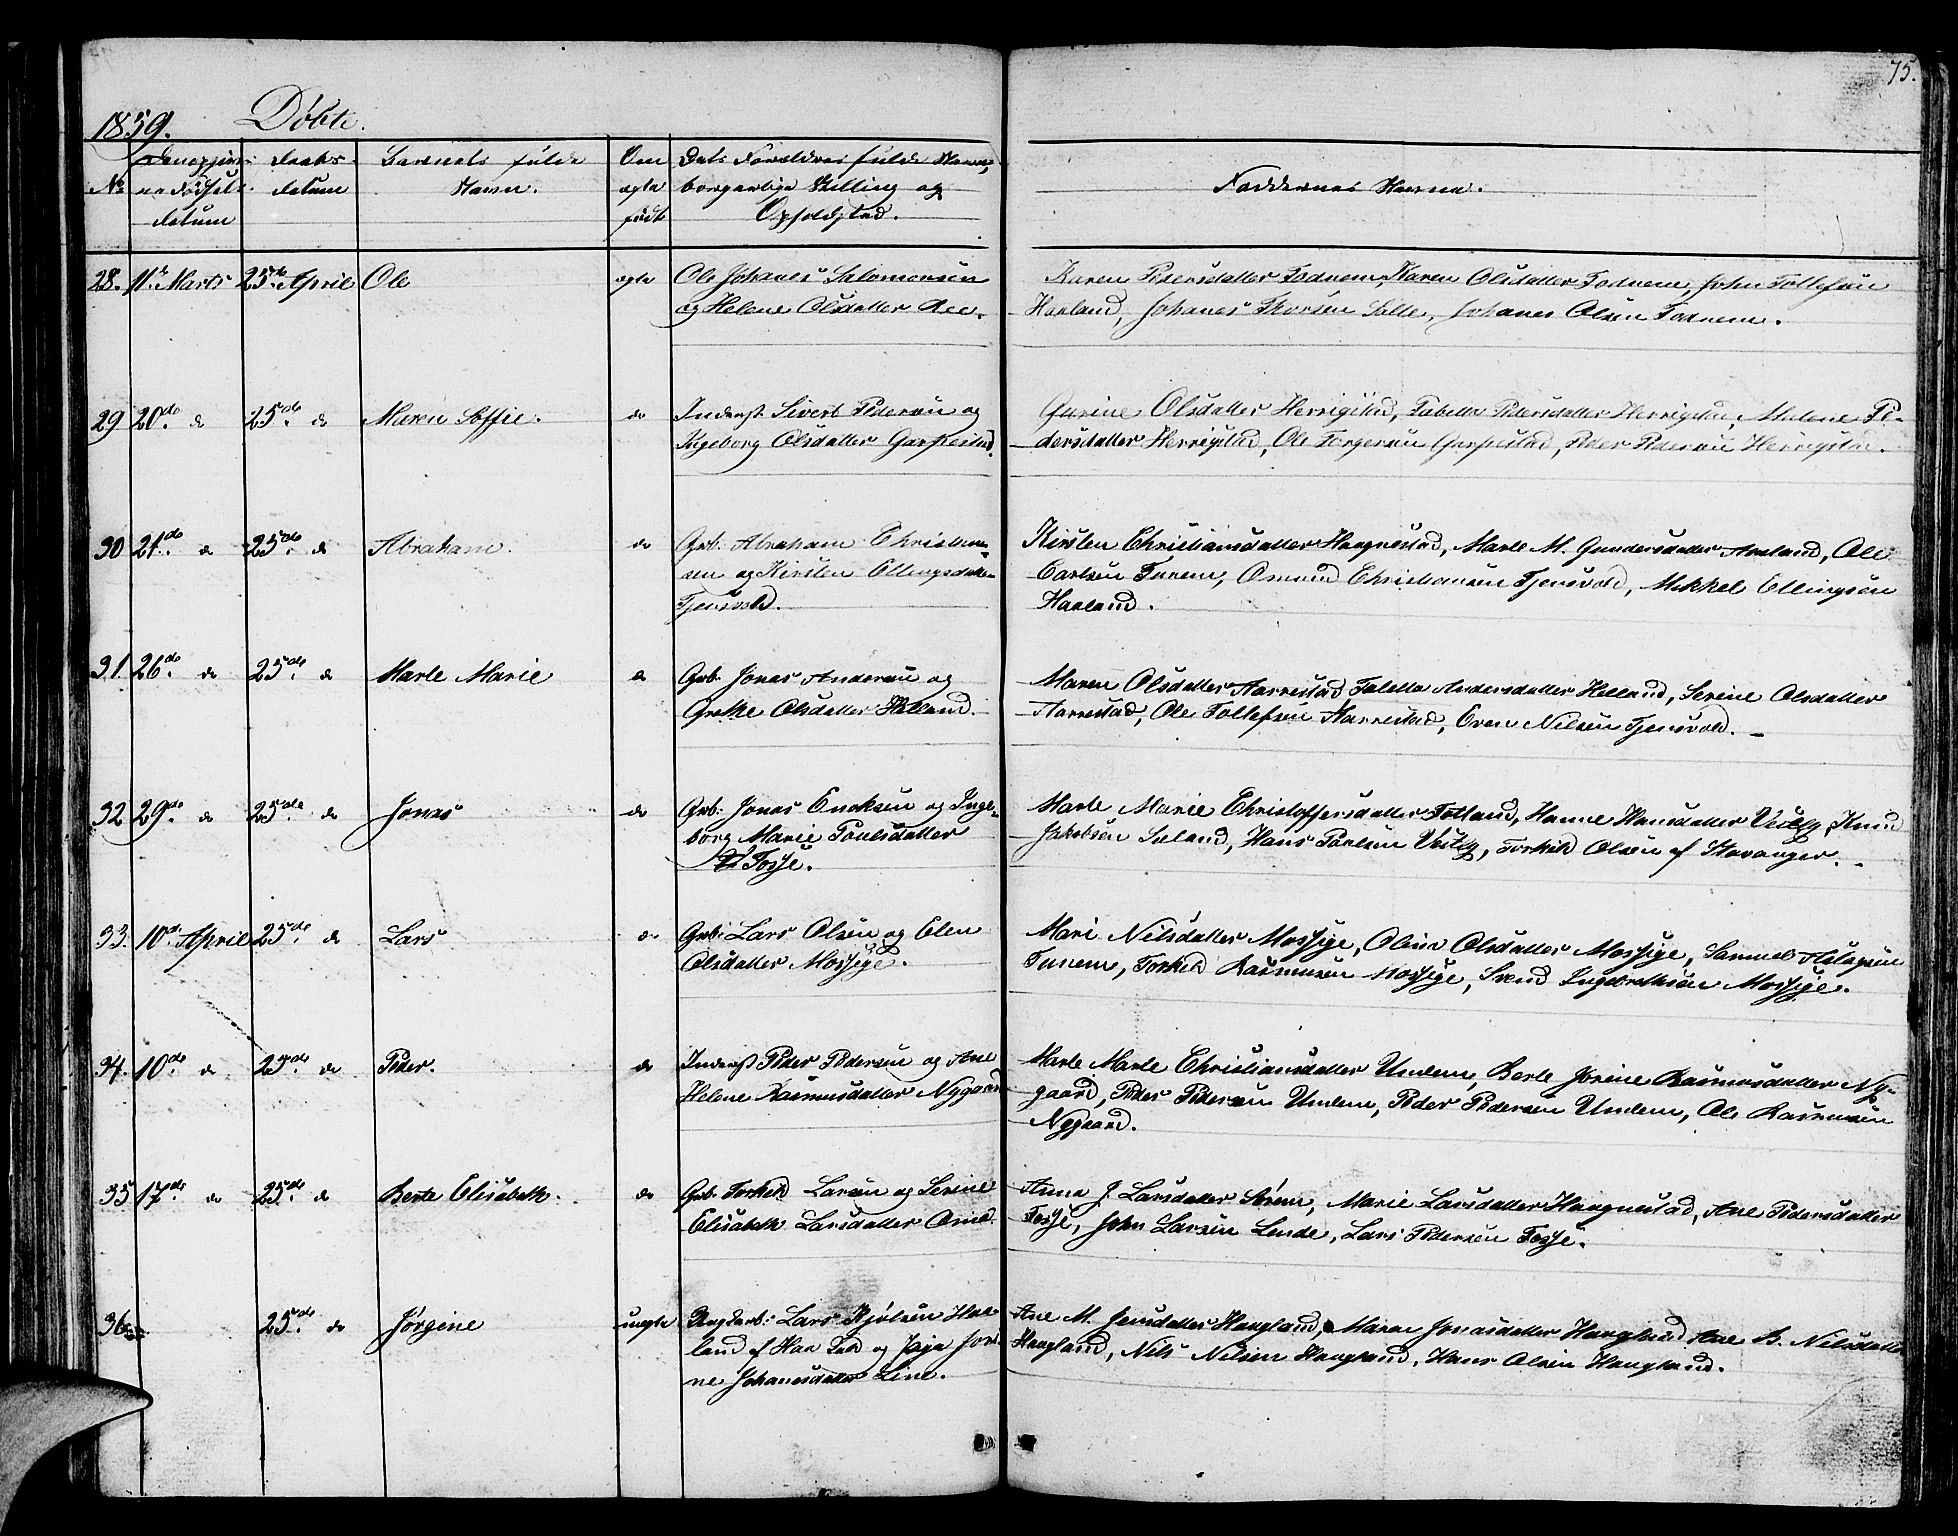 75.
1859. Døbte.
No
Den opgivne Fødsels datum
Daabs datum
Barnets fulde Navn.
Om ægte født
Dets Forældres fulde Navne, borgerlige Stilling og Opholdsted.
Faddernes Navne.
28. 11te Marts 25de April Ole ægte Ole Johanes Salomonsen
og Helene Olsdatter Aee.
Karen Pedersdatter Fodnem, Karen Olsdatter Fodnem, John Tollefsen
Haaland, Johanes Thorsen Salte, Johanes Olsen Fodnem.
29 20de do 25de do Maren Soffie. do Inderst Sivert Pedersen og
Ingeborg Olsdatter Garpestad.
Gurine Olsdatter Herrigstad, Tabetta Pedersdatter Herrigstad, Malene Pe-
dersdatter Herrigstad, Ole Torgersen Garpestad, Peder Pedersen Herrigstad.
30 21de do 25de do Abraham. do Grb. Abraham Christian-
sen og Kirsten Ellingsdatter
Tjensvold.
Kirsten Christiansdatter Haagnestad, Marte M. Gundersdatter Aasland, Ole
Carlsen Tunem, Osmund Christiansen Tjensvold, Mikkel Ellingsen
Haaland.
31. 26de do 25de do Marte Marie do Grb. Jonas Andersen og
Grethe Olsdatter Haaland.
Maren Olsdatter Aarrestad Taletta Andersdatter Helland, Serine Olsdatter
Aarrestad, Ole Tollefsen Aarrestad, Even Nilsen Tjensvold.
32 29de do 25de do Jonas do Grb: Jonas Enoksen og Inge-
borg Marie Poulsdatter
Fosse.
Marte Marie Christoffersdatter Fotland, Hanne Hansdatter Vestly, Knud
Jakobsen Søland, Hans Poulsen Vestly, Torkild Olsen af Stavanger.
33. 10de April 25de do Lars do Grb: Lars Olsen og Elen
Olsdatter Mossige.
Mari Nilsdatter Mossige, Oline Olsdatter Mossige, Samuel Aslagsen
Tunem, Torkild Rasmusen Mossige, Svend Ingebretsen Mossige.
34. 10de do 25de do Peder. do Inderst Peder Pedersen og Ane
Helene Rasmusdatter Nygaard
Marte Marte Christiansdatter Undem, Berte Jorine Rasmusdatter Ny-
gaard, Peder Pedersen Undem, Peder Pedersen Undem, Ole Rasmusen
Nygaard.
35 17de do 25de do Berte Elisabeth. do Grb. Torkild Larsen og Serine
Elisabeth Larsdatter
Anna J. Larsdatter Sørem, Marie Larsdatter Haagnestad, Ane Pedersdatter
Fosse, John Larsen Lende, Lars Pedersen Fosse.
36 25de do Jørgine uægte Ungkarl: Lars Kjølsen Haa-
land af Haa og Jorine Johanesdatter Line.
Ane M. Jensdatter Haugland, Maren Jonasdatter Haugland Ane B. Nilsdatter
Haugland, Nils Nilsen Haugland, Hans Olsen Haugland.